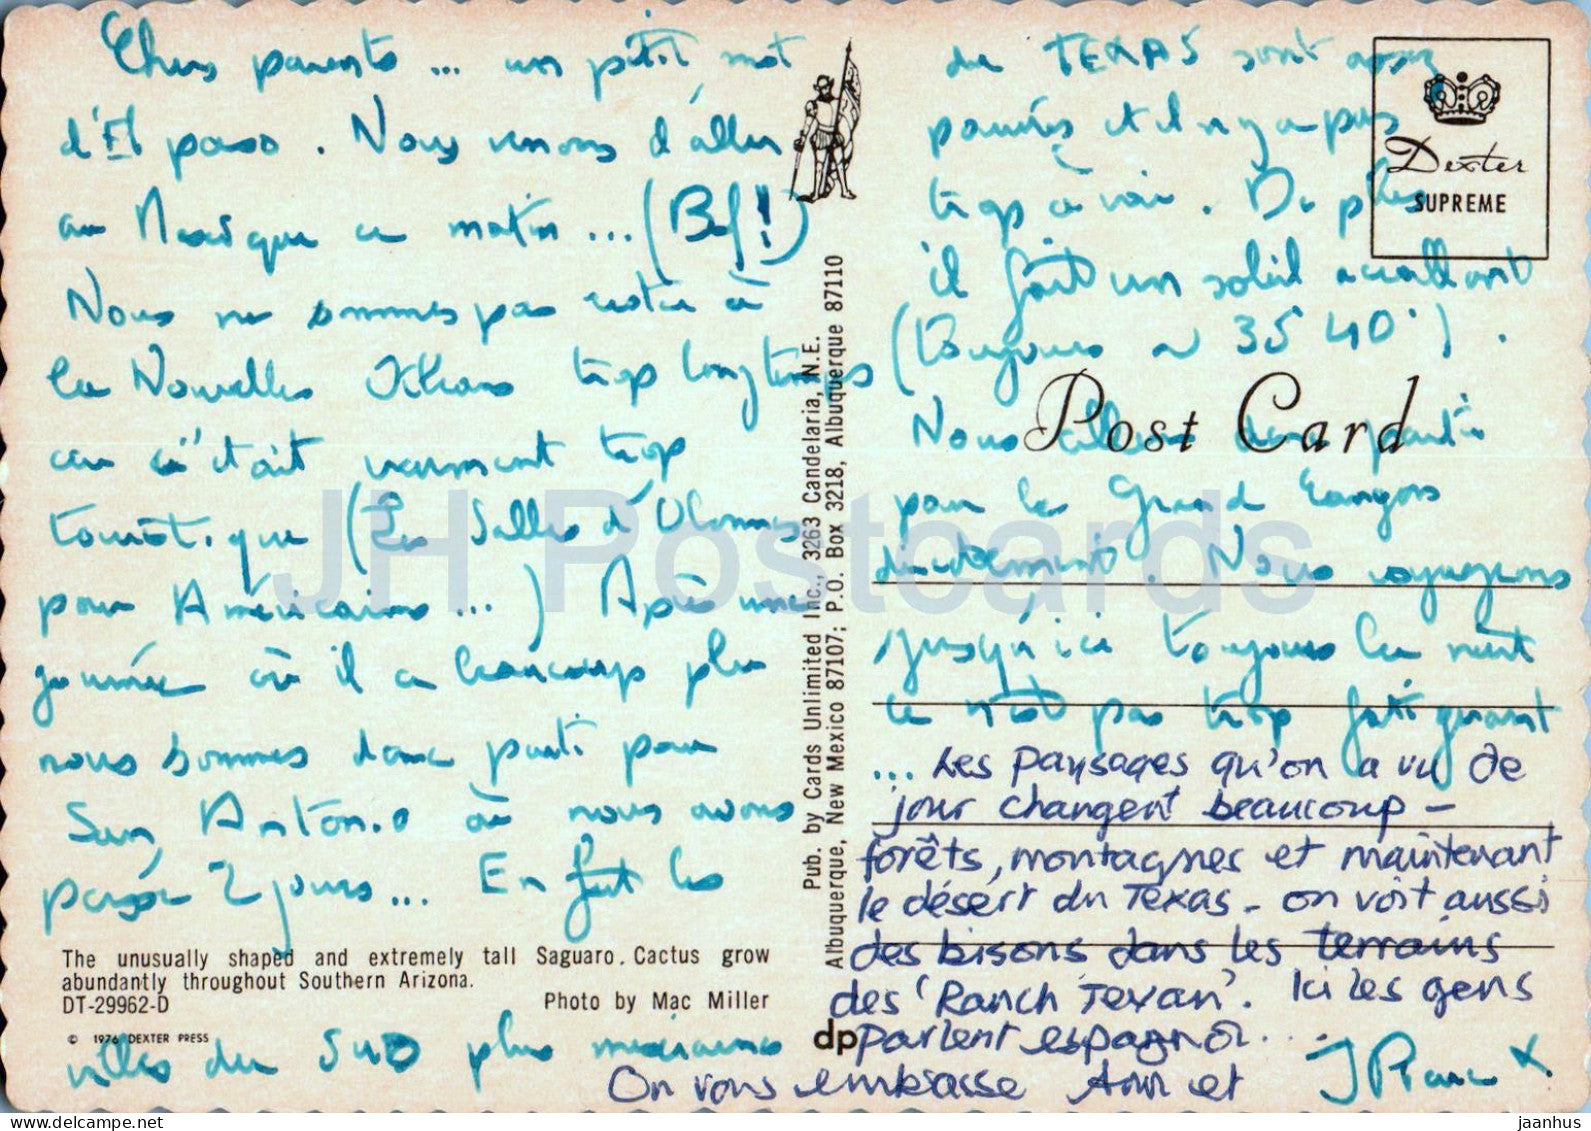 Chers parents ... un petit mot
d'El paso. Nous venons d'aller
au Mexique ce matin ... (Bof!)
Nous ne sommes pas restés à
la Nouvelles Orléans trop longtemps
car c'était vraiment trop
touristique (Les Salles d'Olonnes
pour Américains ...) Après une
journée où il a beaucoup plu
nous sommes donc parti pour
San Antonio où nous avons
passé 2 jours ... En fait les
The unusually shaped and extremely tall Saguaro Cactus grow
abundantly throughout Southern Arizona.
DT-29962-D Photo by Mac Miller
© 1976 DEXTER PRESS
villes du SUD plus mexicaines
Pub. by Cards Unlimited Inc., 3263 Candelaria, N.E.
Albuquerque, New Mexico 87107; P.O. Box 3218, Albuquerque 87110
dp
Dexter
SUPREME
Post Card
du TEXAS sont assez
pauvres et il n'y a pas
trop à voir. De plus
il fait un soleil accablant
(Toujours ~ 35 40°).
Nous allons donc partir
pour le Grand Canyon
directement. Nous voyageons
jusqu'ici toujours la nuit
ce n'est pas trop fatiguant
... Les paysages qu'on a vu de
jour changent beaucoup -
forêts, montagnes et maintenant
le désert du Texas - on voit aussi
des bisons dans les terrains
des 'Ranch Texan'. Ici les gens
parlent espagnol...
On vous embrasse et
JH Postcards
jaanhus